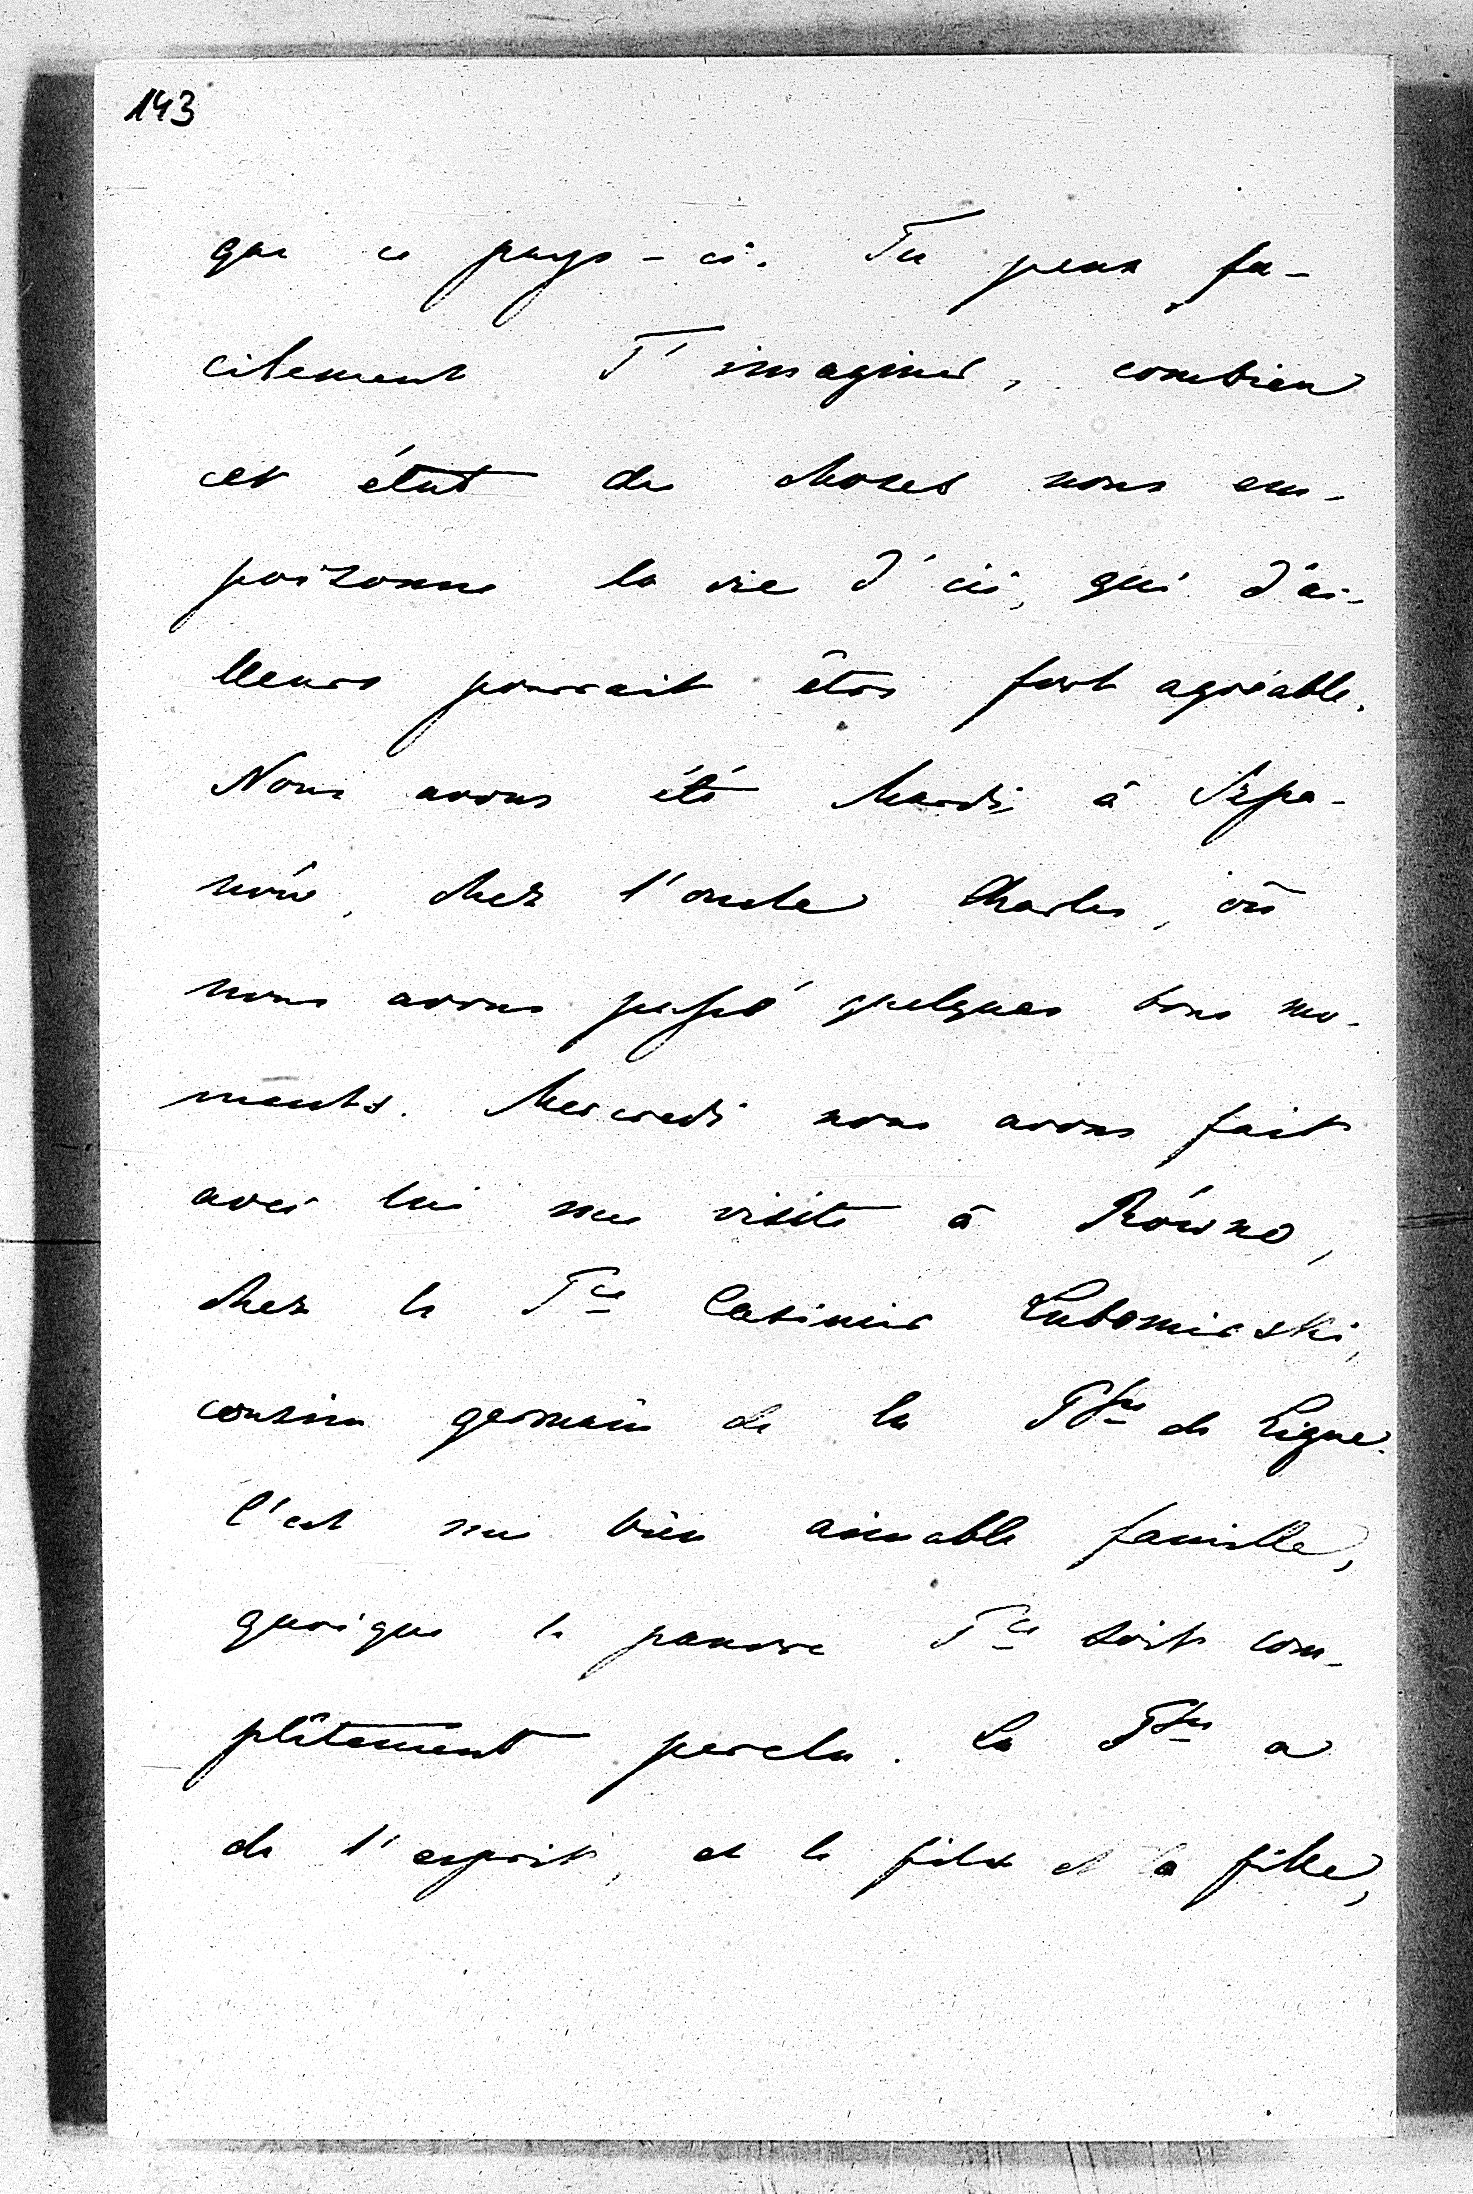 143
que ce pays-ci. Tu peux fa-
cilement T'imaginer, combien
cet état de choses nous em-
poisonne la vie d'ici, qui d'ai-
lleurs pourrait être fort agréable.
Nous avons été Mardi à Szpa-
nów, chez l'oncle Charles, où
nous avons passé quelques bons mo-
ments. Mercredi nous avons fait
avec lui une visite à Równo,
chez le Pce Casimir Lubomirski,
cousin germain de la Psse de Ligne.
C'est une bien aimable famille,
quoique le pauvre Pce soit com-
plètement perclu. La Psse a
de l'esprit, et le fils et la fille,